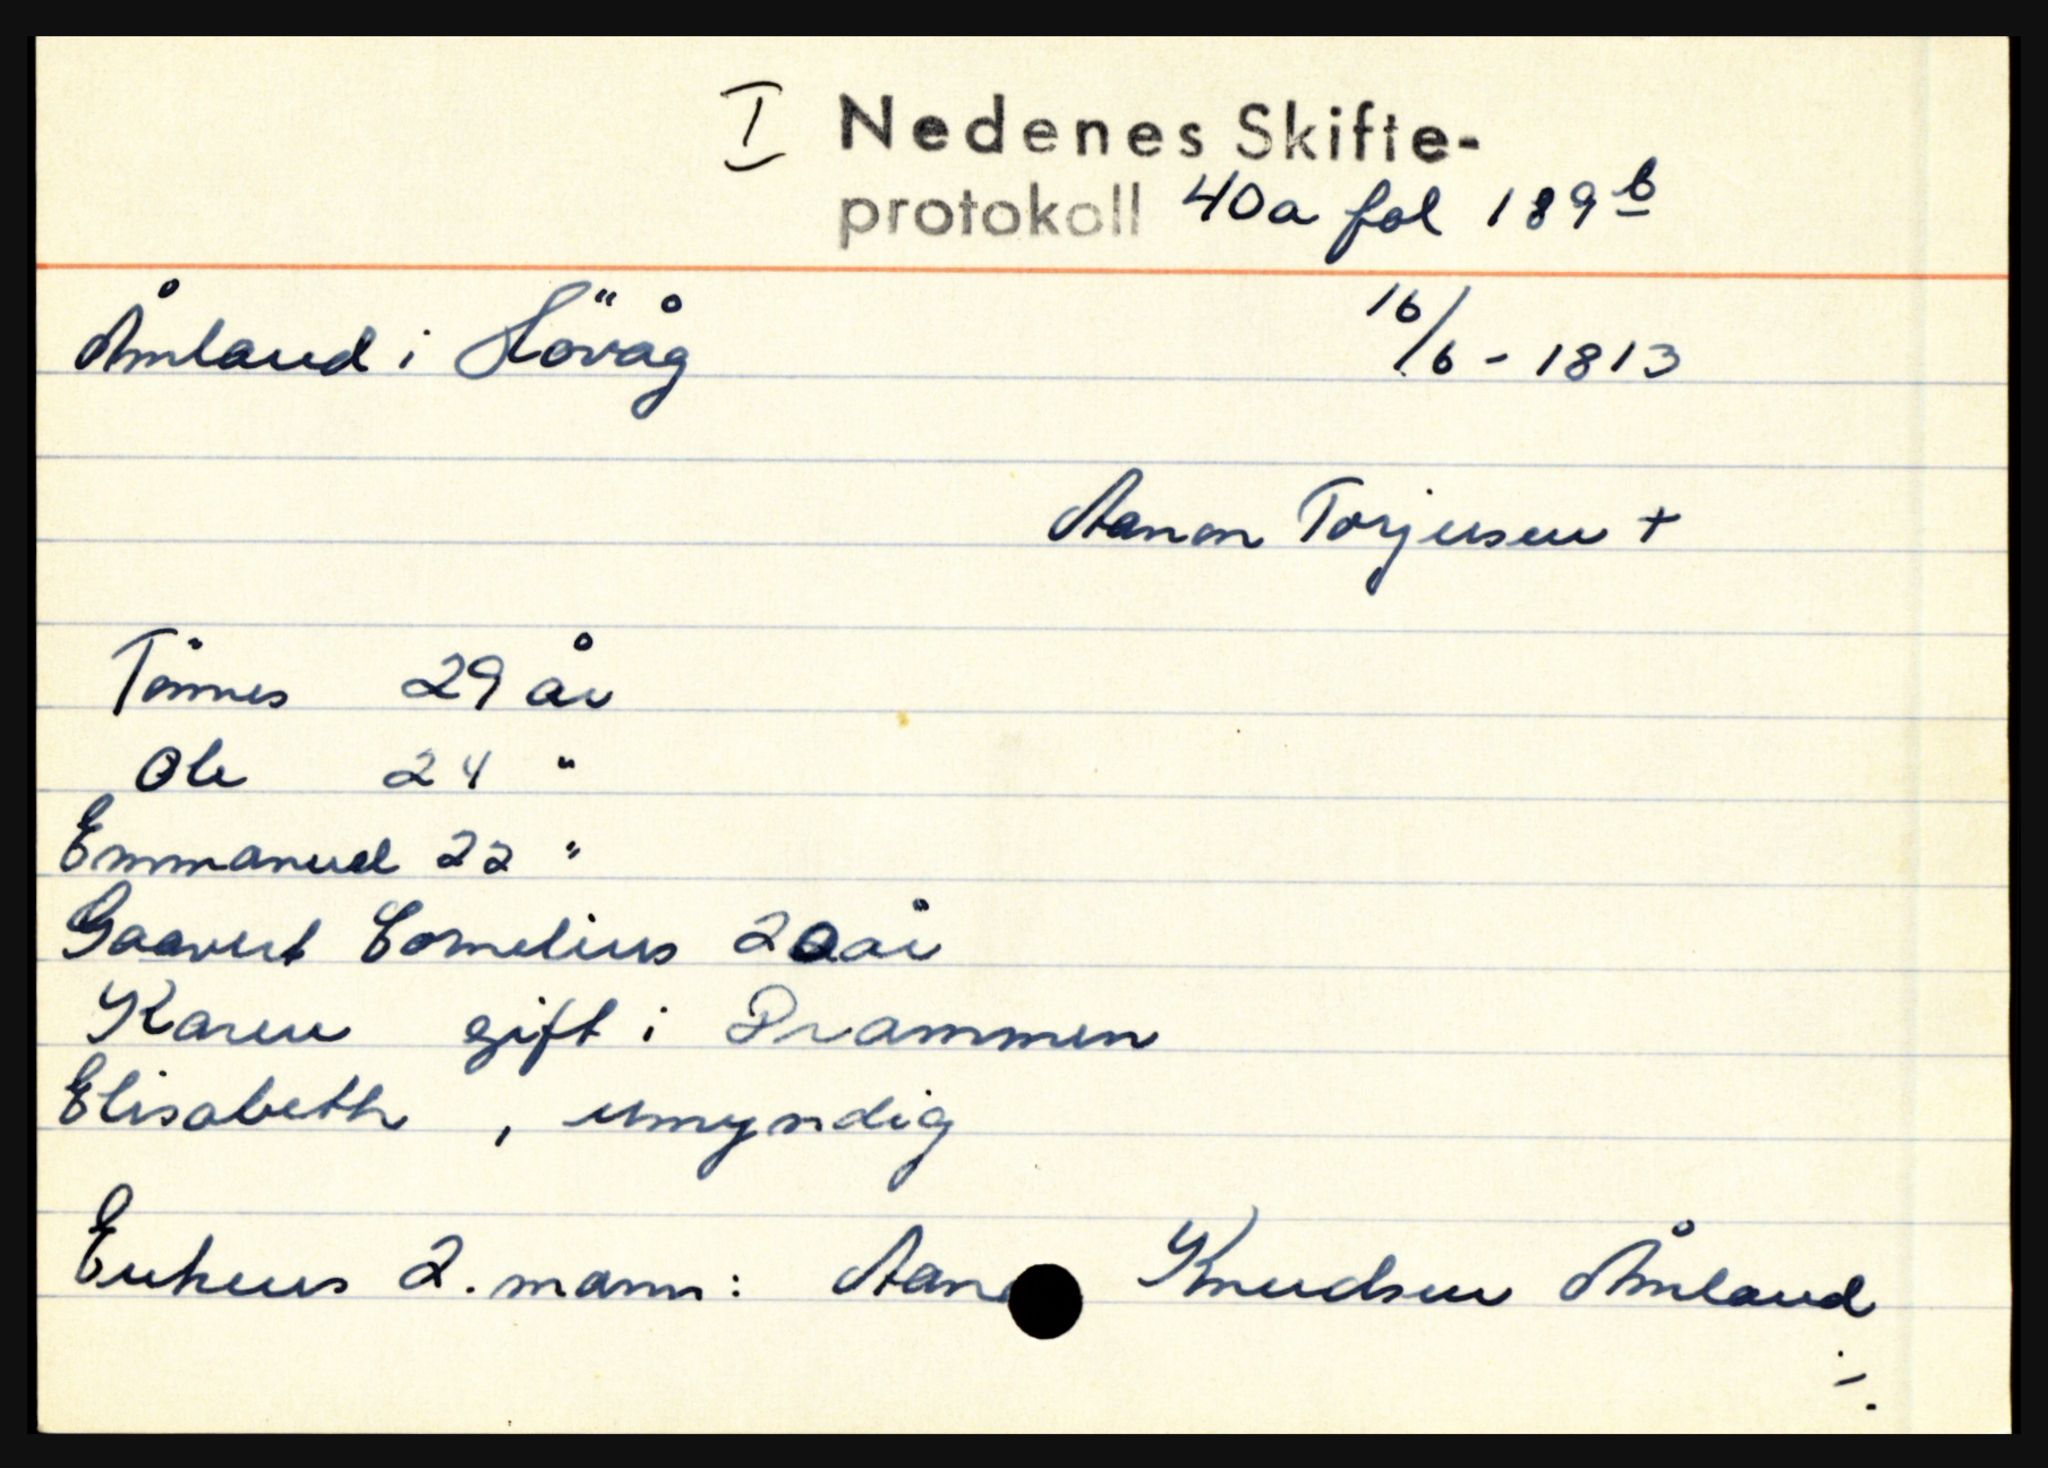 I Nedenes Skifte-
protokoll 40a fol 189 b
Åmland i Hövåg 16/6 - 1813
Aanon Torjersen +
Tönnes 29 år
Ole 24 "
Emmanuel 22 "
Gaavert Cornelius 20 år
Karen gift i Drammen
Elisabeth , umyndig
Enkens 2. mann: Knudsen Åmland